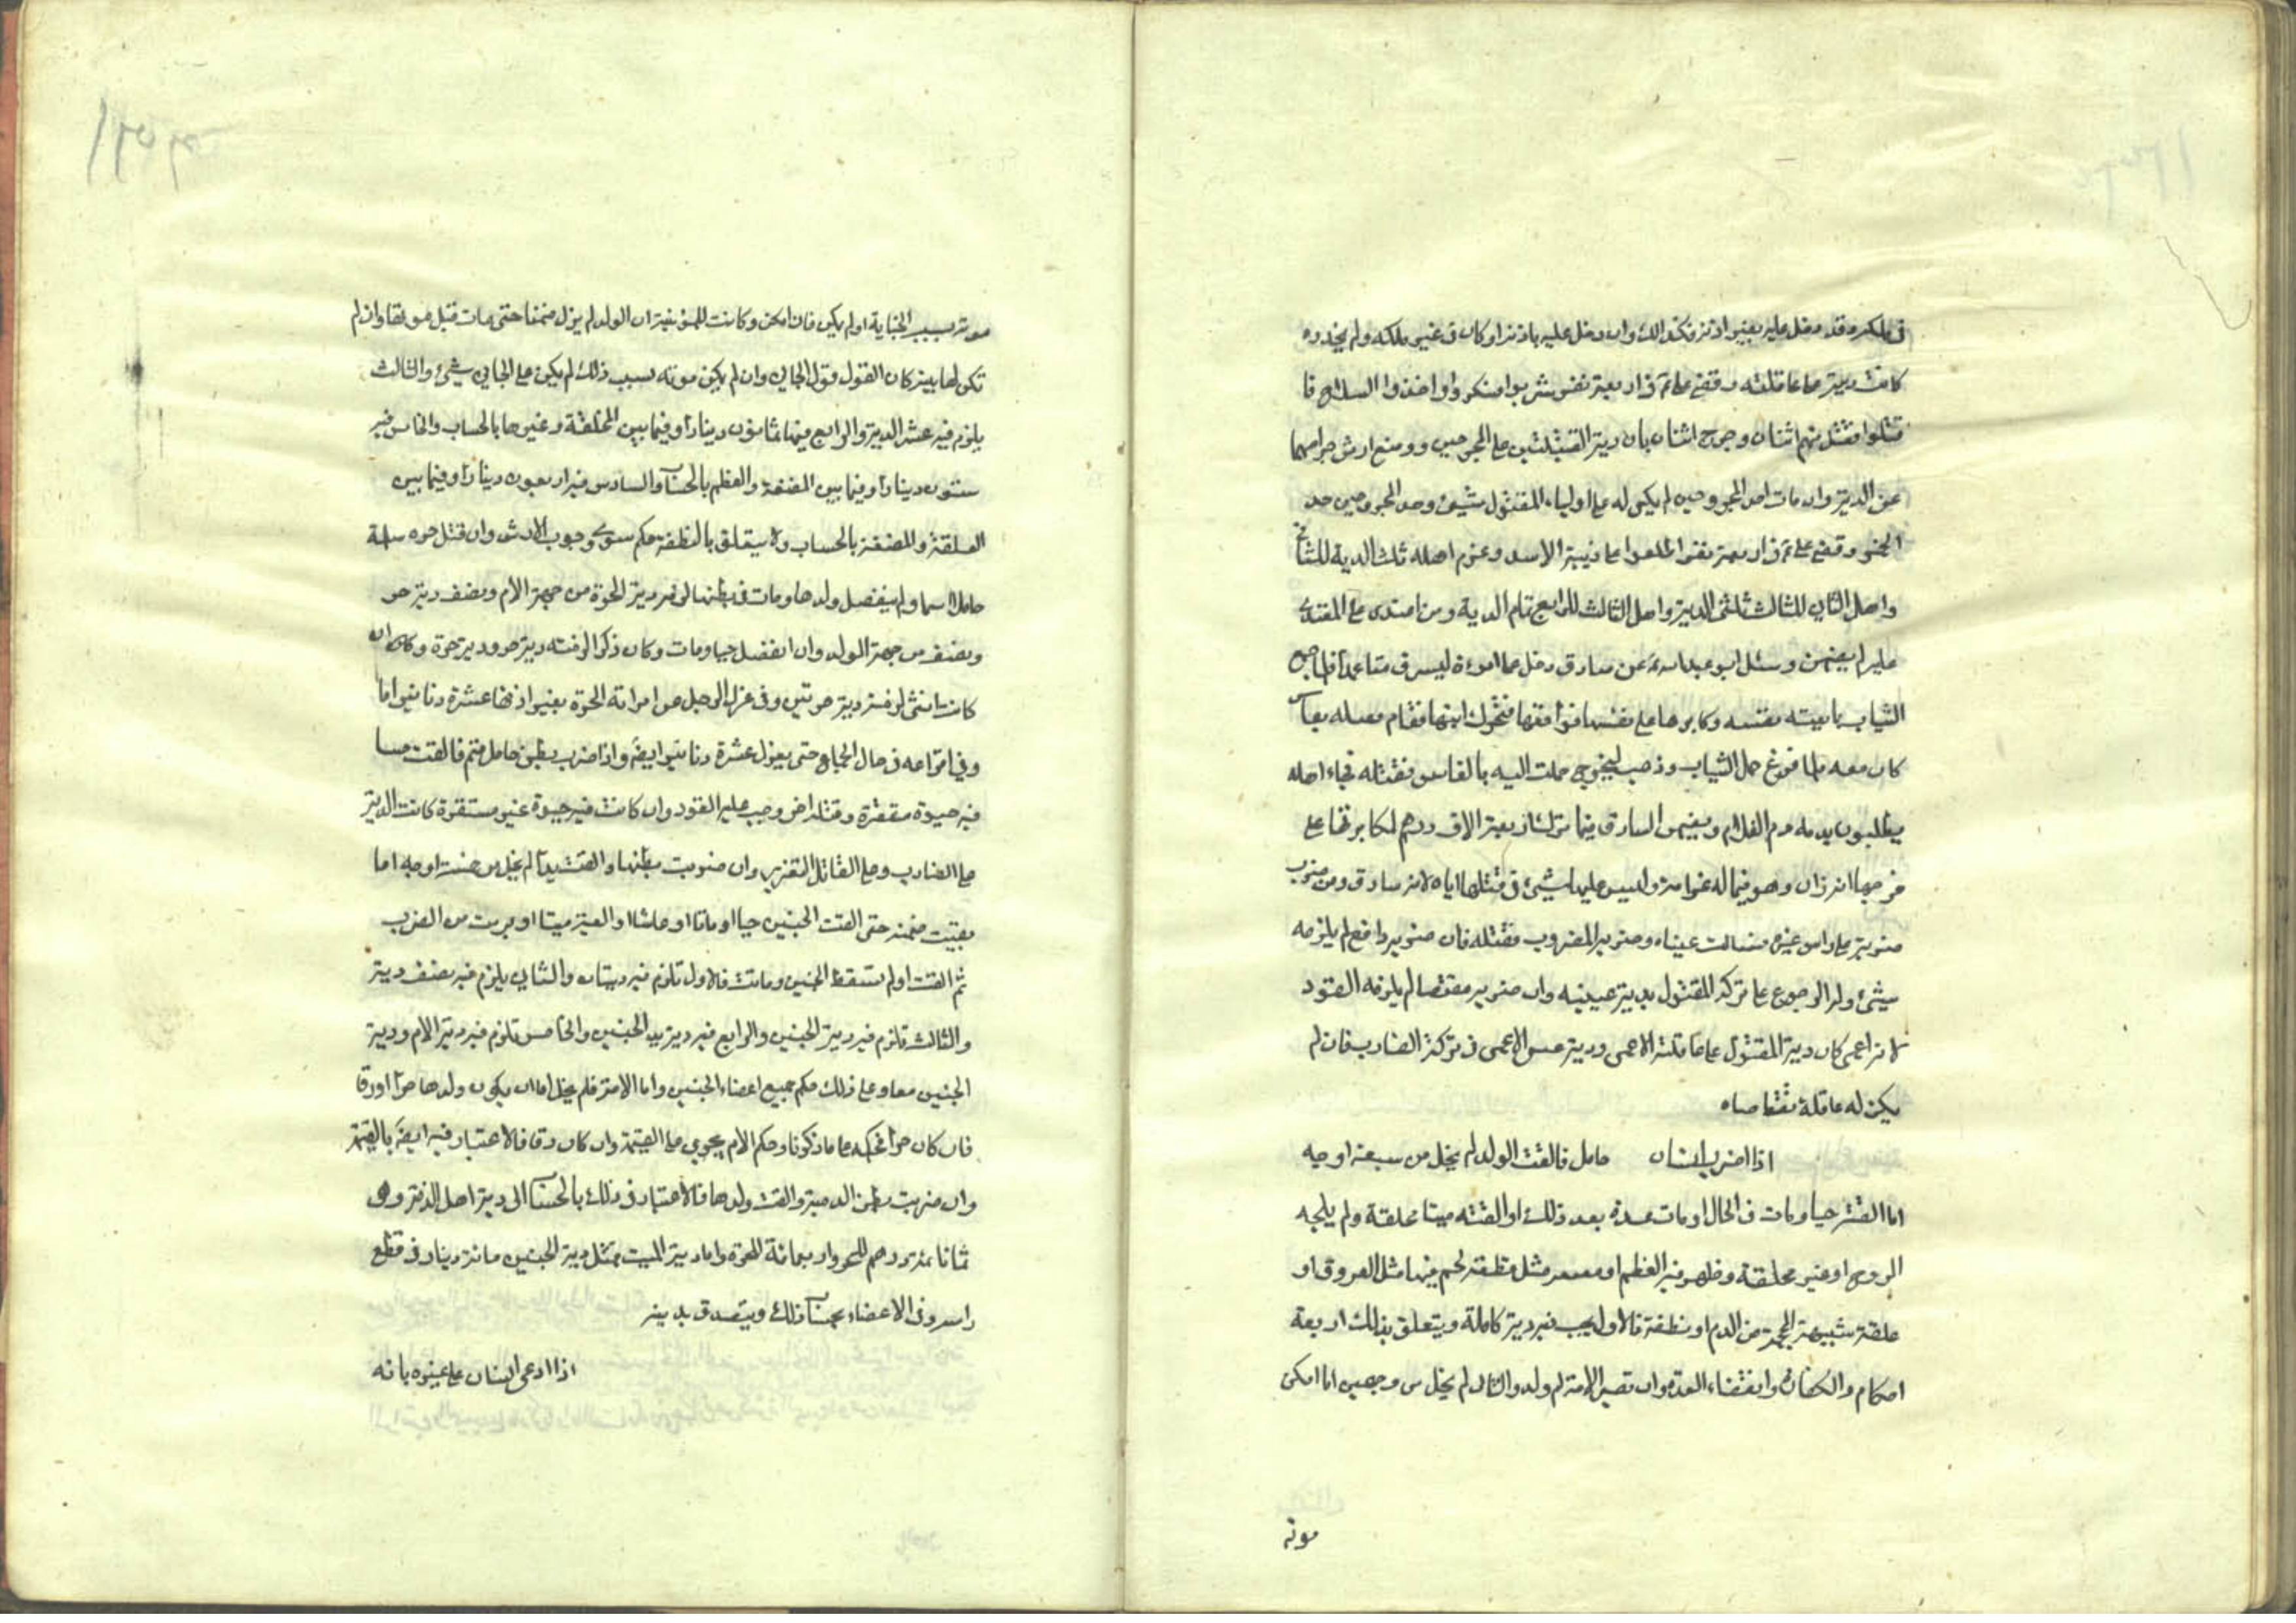 في ملكه وقد دخل عليه بغير اذنه فكذالك وان دخل عليه باذنه او كان في غير ملكه ولم يحذره
كانت ديته على عاقلته وقضى علي ع في اربعة نفر شربوا فسكروا واخذوا السلاح فا
قتتلوا فقتل منهم اثنان وجرح اثنان بان دية القتيلين على المجروحين ووضع ارش جراحهما
عن الدية وان مات احد المجروحين لم يكن له على اولياء المقتول شيئ وحد المجروحين حد
الخمر وقضى علي ع في اربعة نفر اطلعوا على زبية الاسد وغرم اهله ثلث الدية للثاني
واهل الثاني للثالث ثلثي الدية واهل الثالث للرابع تمام الدية ومن اعتدى على المعتدى
عليه لم يضمن وسئل ابو عبد الله ع عن سارق دخل على امرءة ليسرق متاعها فلما جمع
الثياب تابعته نفسه وكابرها على نفسها فواقعها فتحرك ابنها فقام فقتله بفأس
كان معه فلما فرغ حمل الثياب وذهب ليخرج حملت اليه بالفاس فقتلته فجاء اهله
يطلبون بدمه دم الغلام ويضمن السارق فيما ترك اربعة الاف درهم لمكابرتها على
فرجها انه زان وهو في ماله غرامة وليس عليها شيئ في قتلها اياه لانه سارق ومن ضرب
ضربة على راس غيره فسالت عيناه وضربه المضروب فقتله فان ضربه دافع لم يلزمه
شيئ وله الرجوع على تركة المقتول بدية عينيه وان ضربه مقتصا لم يلزمه القود
لانه اعمى كان دية المقتول على عاقلته الاعمى ودية عين الاعمى في تركة الضارب فان لم
يكن له عاقلة تقاصاه
اذا ضرب انسان حامل فالقت الولد لم يخل من سبعة اوجه
اما القته حيا ومات في الحال او مات بعد ذلك او القته ميتا مخلقة ولم يلجه
الروح او غير مخلقة وظهر فيه العظم او مثل قطعة لحم فيها مثل العروق او
علقة شبيهة المحجمة من الدم او نطفة فالاول يجب فيه دية كاملة ويتعلق بذلك اربعة
احكام والكفارة وانقضاء العدة وان تصير الامة ام ولد والثاني لم يخل من وجهين اما امكن
موته
موته بسبب الجناية او لم يكن فان امكن وكانت للمؤ بينة ان الولد لم يزل ضمنا حتى مات قبل قولها وان لم
تكن لها بينة كان القول قول الجاني وان لم يكن موته بسبب ذلك لم يكن على الجاني شيئ والثالث
يلزم فيه عشر الدية والرابع فيها ثمانون دينارا وفيما بين المخلقة وغيرها بالحساب والخامس فيه
ستون دينارا وفيما بين المضغة والعظم بالحساب والسادس فيه اربعون دينارا وفيما بين
العلقة والمضغة بالحساب ولا يتعلق بالنطفة حكم سوى وجوب الارش وان قتل حرة مسلمة
حاملا ولم ينفصل ولدها ومات في بطنها لزمه دية الحرة من جهة الام ونصف دية حر
ونصف من جهة الولد وان انفصل حيا ومات وكان ذكرا لزمته دية حر ودية حرة وكان ان
كانت انثى لزمته دية حرتين وفي عزل الرجل عن امراته الحرة بغير اذنها عشرة دنانير اما
وفي افزاعه في حال الجماع حتى يعزل عشرة دنانير ايضا واذا ضرب بطن حامل فالقت جنينا
فيه حيوة مستقرة وقتله اخر وجب عليه القود وان كانت فيه حيوة غير مستقرة كانت الدية
على الضارب وعلى القاتل التعزير وان ضربت بطنها والقت يدا لم يخل من خمسة اوجه اما
بقيت ضمنة حتى القت الجنين حيا او ماتا او عاشا او القته ميتا او بريت من الضرب
ثم القت او لم تسقط الجنين وماتت فالاول تلزم فيه ديتان والثاني يلزم فيه نصف دية
والثالث تلزم فيه دية الجنين والرابع فيه دية يد الجنين والخامس تلزم فيه دية الام ودية
الجنين معا وعلى ذلك حكم جميع اعضاء الجنين واما الامة فلم يخل اما ان يكون ولدها حرا او رقا
فان كان حرا فحكمه على ما ذكرنا وحكم الام يجري على القيمة وان كان رقا فالاعتبار فيه ايضا بالقيمة
وان ضربت بطن الذمية والقت ولدها فالاعتبار في ذلك بالحساب الى دية اهل الذمة وهى
ثمانمائة درهم للحر واربعمائة للحرة واما دية الميت فمثل دية الجنين مائة دينار في قطع
راسه وفي الاعضاء بحساب ذلك ويتصدق بديته
اذا ادعى انسان على غيره بانه